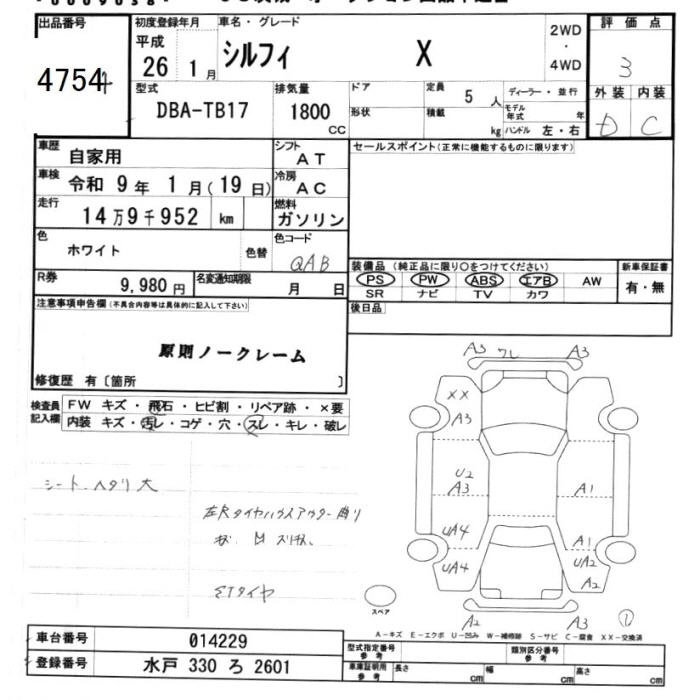 出品番号 初度登録年月 車名・グレード 2WD・4WD 評価点
4754
平成 26 1月 シルフィ X 3
型式 排気量 ドア 定員 5人 ディーラー・並行 外装 内装
DBA-TB17 1800 CC 形状 積載 kg モデル年式 年 ハンドル 左・右 D C
車歴 自家用 シフト AT セールスポイント(正常に機能するものに限ります)
車検 令和 9年 1月(19日) 冷房 AC
走行 14万9千952 km 燃料 ガソリン
色 ホワイト 色替 色コード QAB
装備品(純正品に限り○をつけてください) 新車保証書
PS PW ABS エアB AW 有・無
SR ナビ TV カワ
R券 9,980円 名変通知期限 月 日
後日品
注意事項申告欄(不具合内容等は具体的に記入して下さい)
原則ノークレーム
修復歴 有〔箇所 〕
検査員記入欄 FW キズ・飛石・ヒビ割・リペア跡・×要
内装 キズ・汚レ・コゲ・穴・スレ・キレ・破レ
シートヘタリ大
左Rタイヤハウスアウター曲り
A3 ワレ A3
XX
A3
U2
A3 A1
UA4 A1
UA4 UA2
A2
A2 A3
スペア
A-キズ E-エクボ U-凹み W-補修跡 S-サビ C-腐食 XX-交換済
車台番号 014229
登録番号 水戸 330 ろ 2601
型式指定番号 参考 類別区分番号 参考
車庫証明用 参考 長さ cm 幅 cm 高さ cm